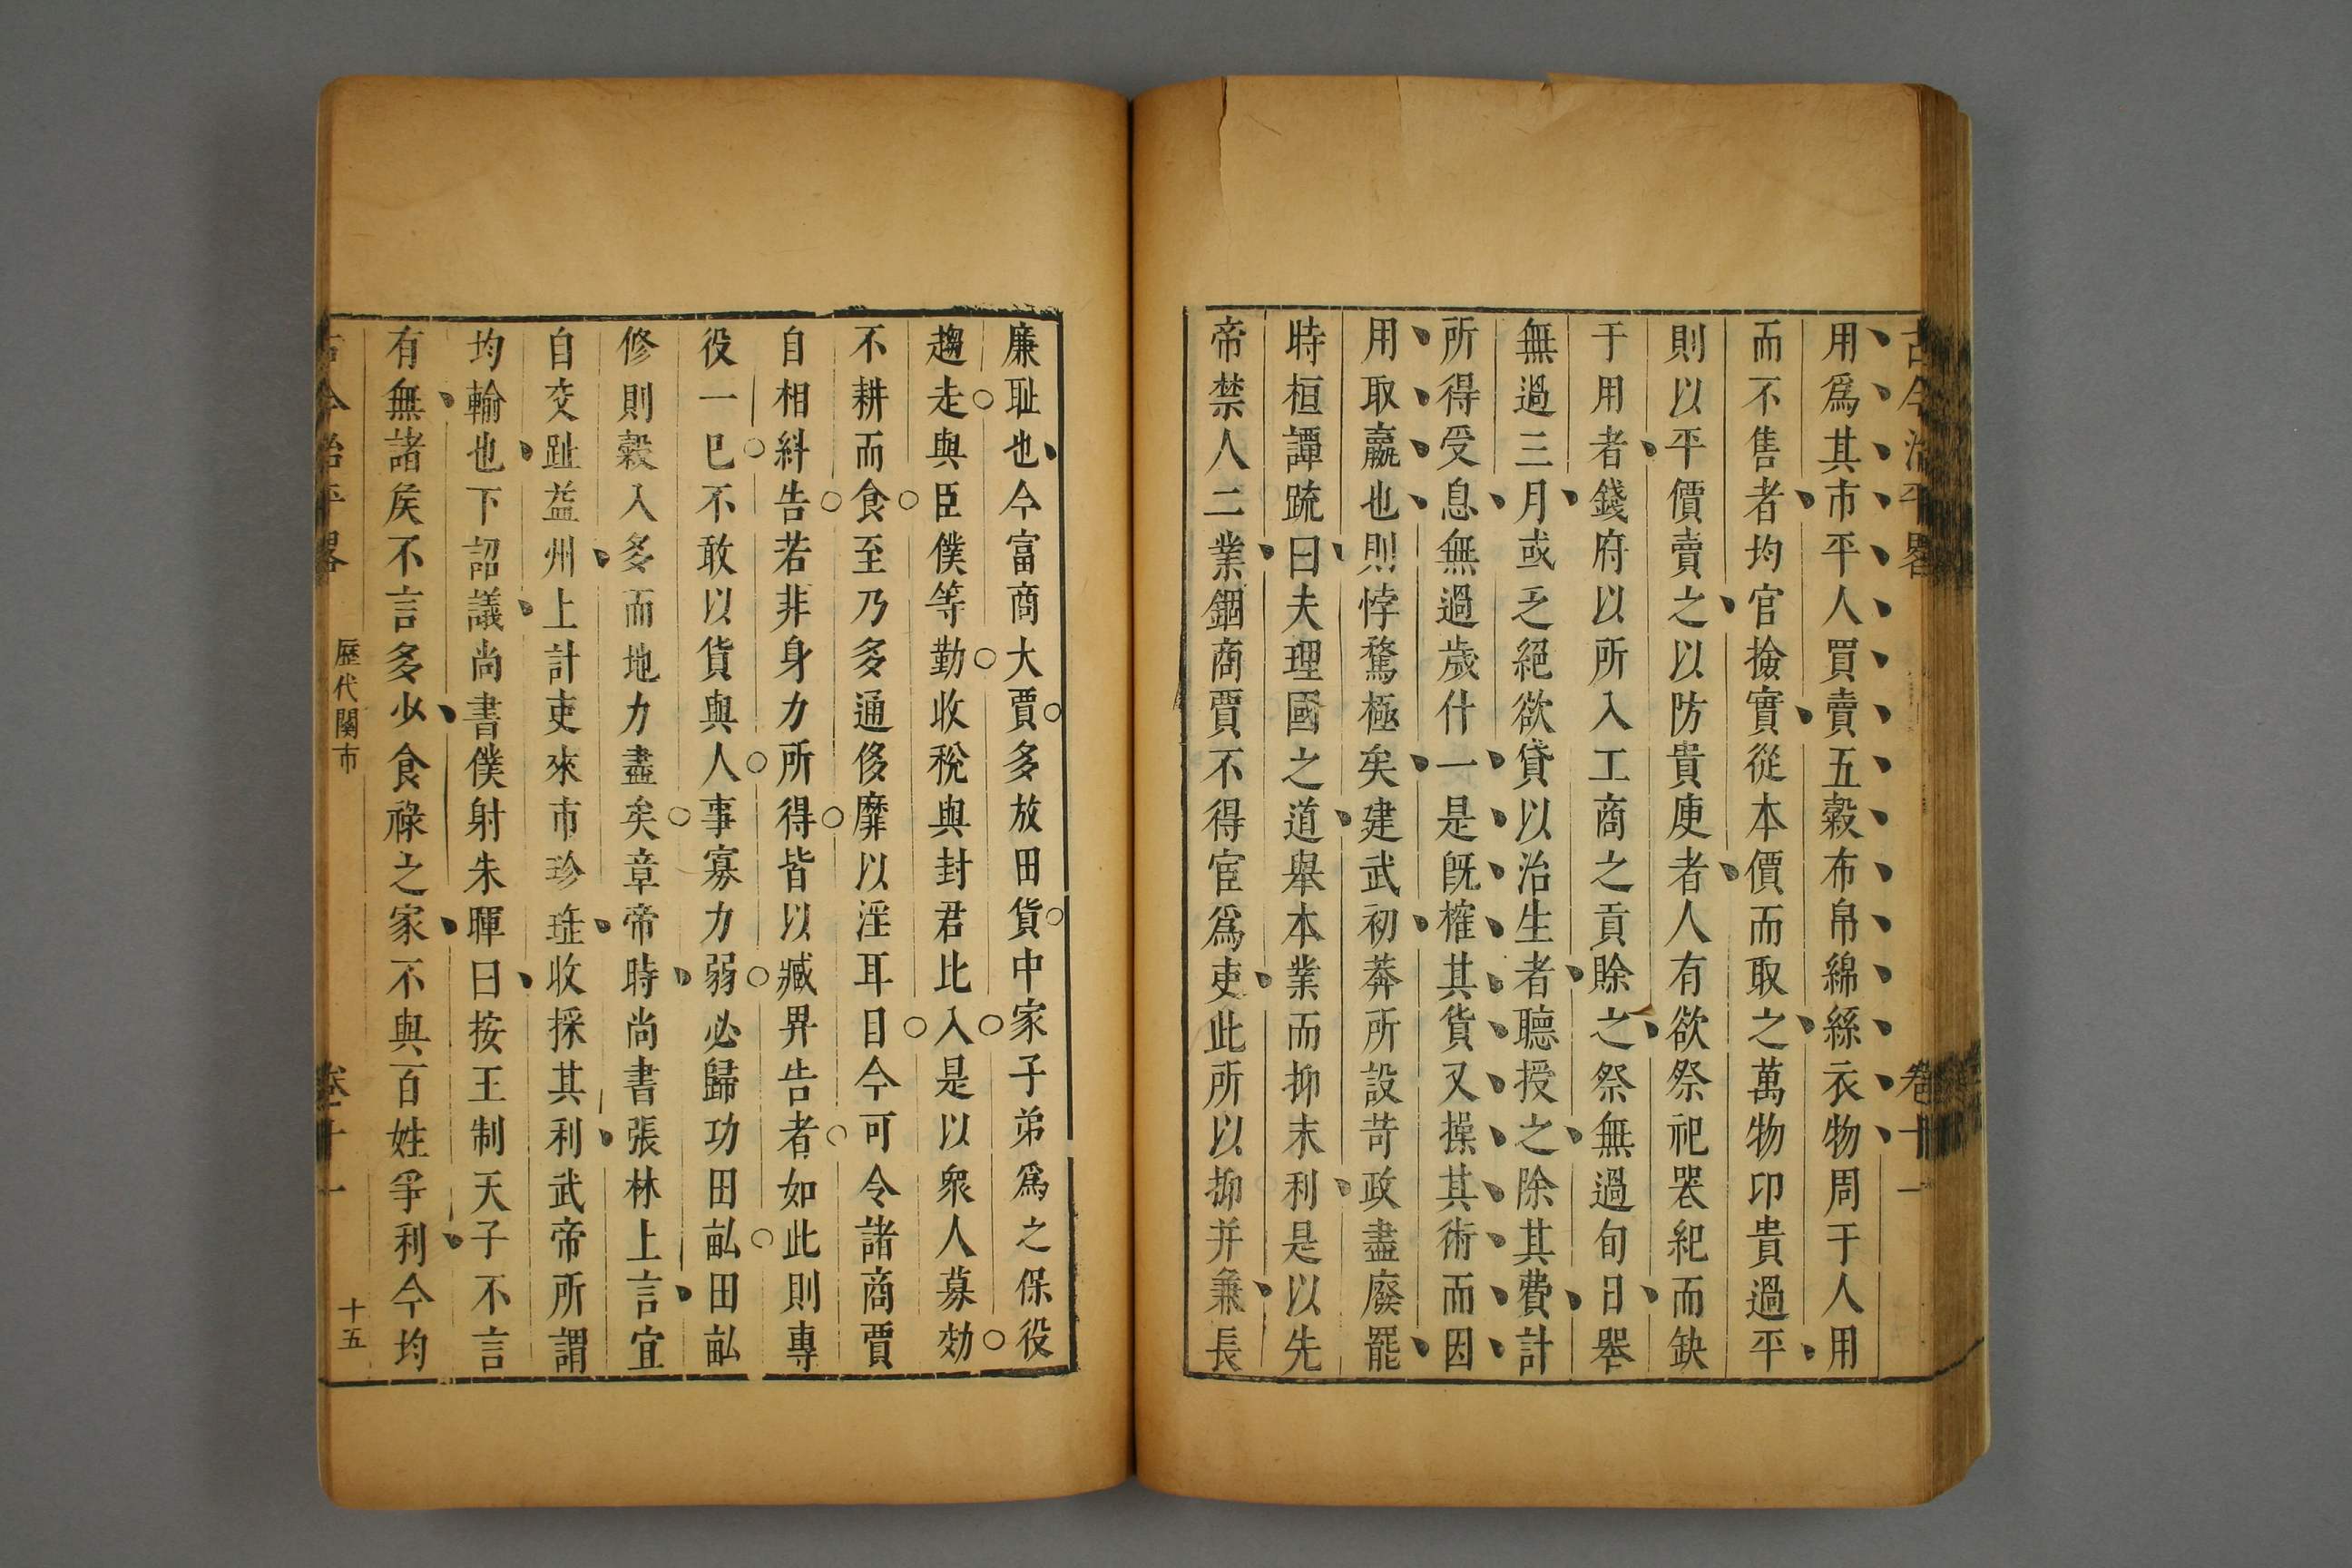 古今治平畧 卷十一
用爲其市平人買賣五穀布帛綿絲衣物周于人用
而不售者均官撿實從本價而取之萬物卬貴過平
則以平價賣之以防貴庾者人有欲祭祀喪紀而缺
于用者錢府以所入工商之貢賒之祭無過旬日喪
無過三月或乏絕欲貸以治生者聽授之除其費計
所得受息無過歲什一是旣榷其貨又操其術而因
用取嬴也則悖騖極矣建武初莽所設苛政盡廢罷
時桓譚疏曰夫理國之道舉本業而抑末利是以先
帝禁人二業錮商賈不得宦爲吏此所以抑并兼長
廉耻也今富商大賈多放田貨中家子弟爲之保役
趨走與臣僕等勤收稅與封君比入是以衆人募効
不耕而食至乃多通侈靡以淫耳目今可令諸商賈
自相糾告若非身力所得皆以臧畀告者如此則專
役一已不敢以貨與人事寡力弱必歸功田畝田畝
修則穀入多而地力盡矣章帝時尚書張林上言宜
自交趾益州上計吏來市珍琟收採其利武帝所謂
均輸也下詔議尚書僕射朱暉曰按王制天子不言
有無諸矦不言多少食祿之家不與百姓爭利今均
古今治平畧 歷代關市 卷十一 十五